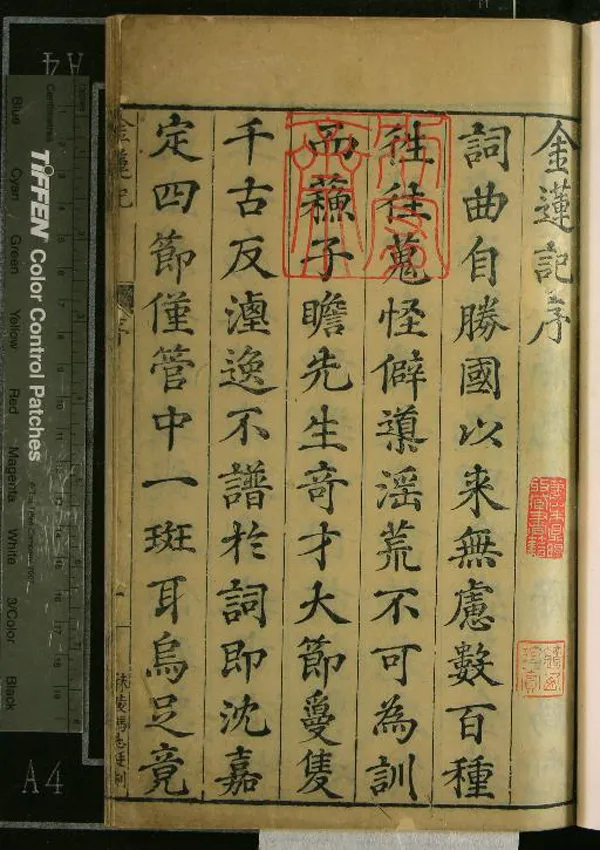 金蓮記序
詞曲自勝國以來無慮數百種
徃徃蒐怪僻導滛荒不可為訓
而蘓子瞻先生竒才大節敻隻
千古反湮逸不譜於詞即沈嘉
定四節僅管中一斑耳烏足竟
金蓮記
序
一
TIFFEN Color Control Patches
Blue
Cyan
Green
Yellow
Red
Magenta
White
3/Color
Black
A4
A4